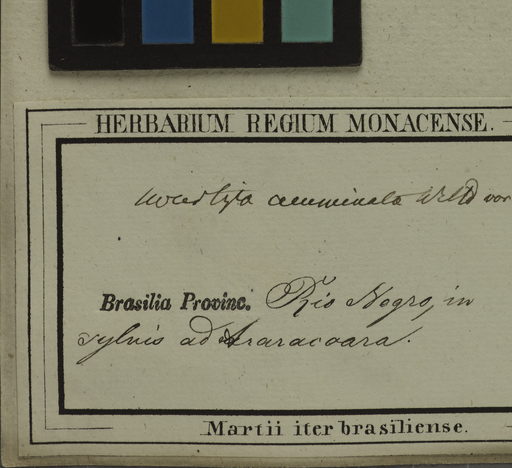 HERBARIUM REGIUM MONACENSE.
acuminata Willd var
Brasilia Provinc. Rio Negro, in
sylvis ad Araracoara.
Martii iter brasiliense.